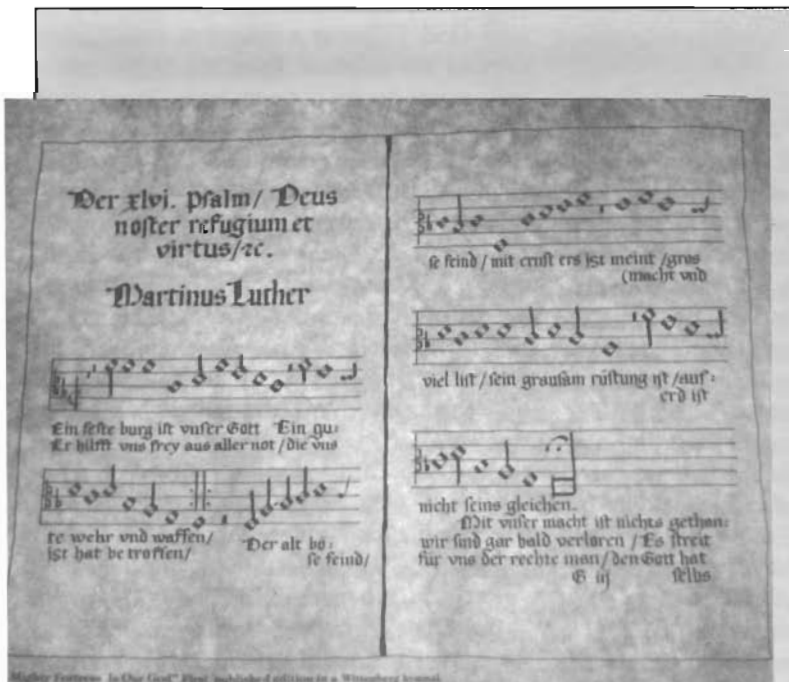 Der xlvi. Psalm/ Deus
noster refugium et
virtus/ꝛc.
Martinus Luther
Ein feste burg ist vnser Gott Ein gu⸗
Er hilfft vns frey aus aller not/die vns
te wehr vnd waffen/ Der alt bö⸗
ist hat be troffen/ se feind/
se feind/mit ernst ers jst meint/gros
(macht vnd
viel list/sein grausam rüstung ist/auf⸗
erd ist
nicht seins gleichen.
Mit vnser macht ist nichts gethan⸗
wir sind gar bald verloren/Es streit
für vns der rechte man/den Gott hat
G iij selbs
Mighty Fortress Is Our God" First published edition in a Wittenberg hymnal